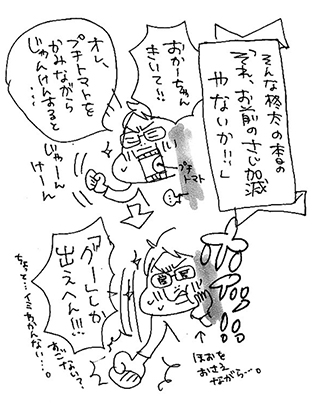 そんな柊太の本日の
「それ、お前のさじ加減
やないか!!」
おかーちゃん
きいて!!
オレ、
プチトマトを
かみながら
じゃんけんすると
…
じゃーん
けーん
プチ
トマト
ポ
「グー」しか
出えへん!!!
すごない?
ちょっと…イミわかんない…。
ほおを
おさえ
ながら…。